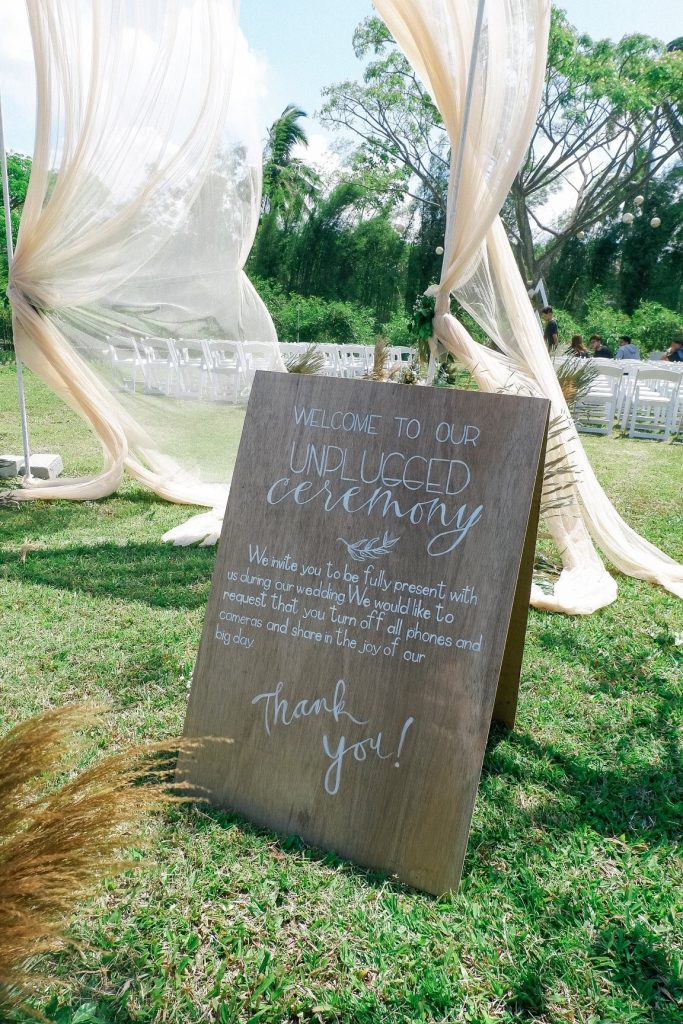 WELCOME TO OUR
UNPLUGGED
ceremony
We invite you to be fully present with
us during our wedding We would like to
request that you turn off all phones and
cameras and share in the joy of our
big day.
Thank
you!